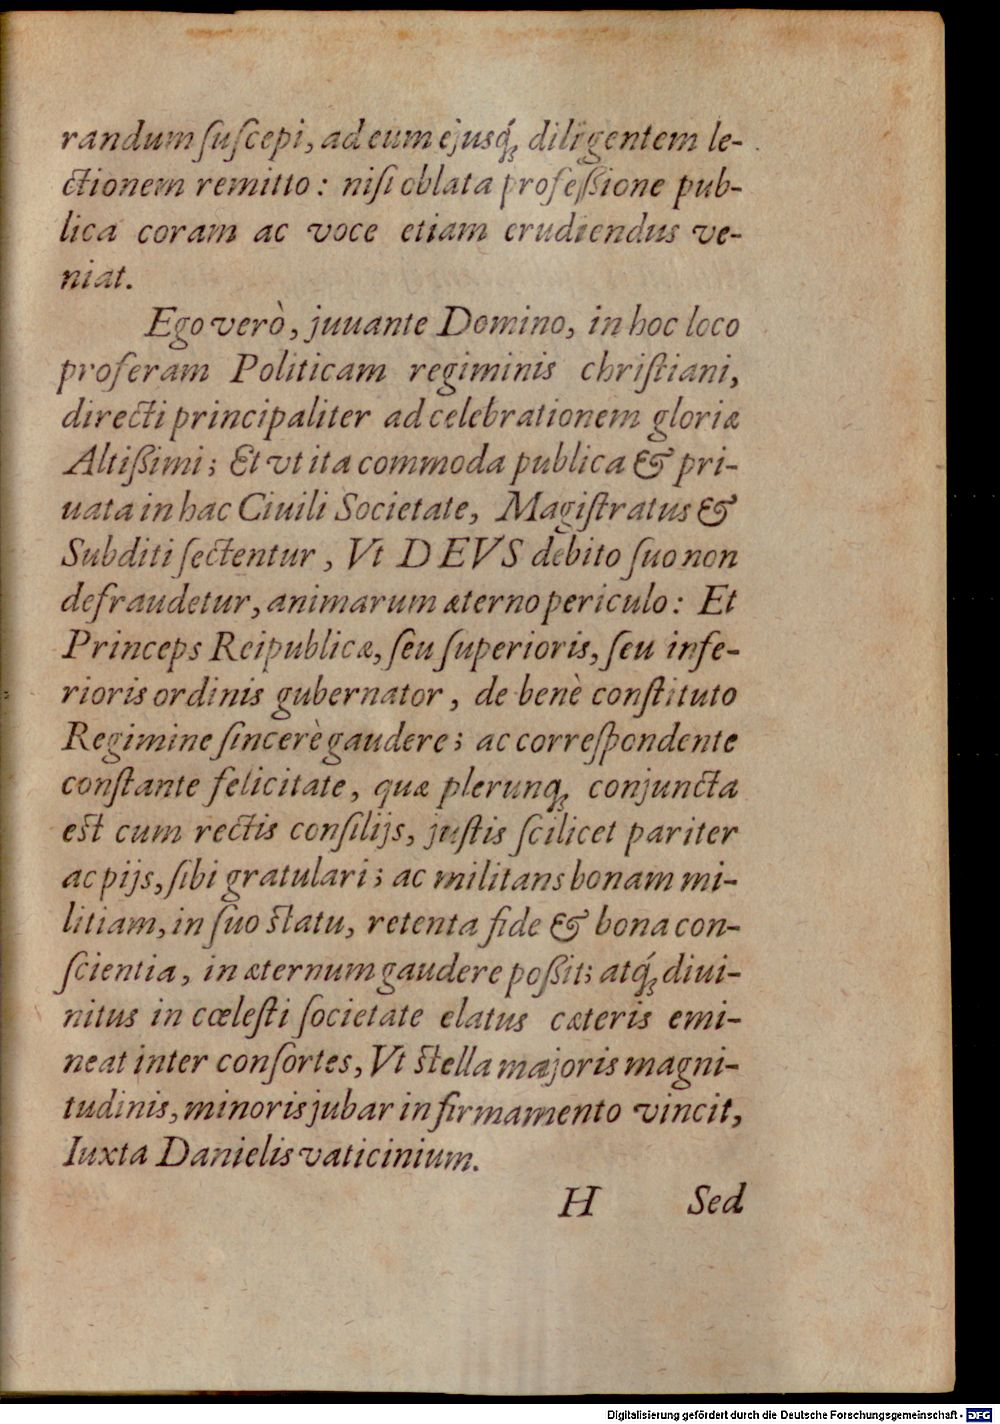 randum ſuſcepi, ad eum ejusq́ꝫ diligentem le-
ctionem remitto: niſi oblata profeſsione pub-
lica coram ac voce etiam erudiendus ve-
niat.
Ego verò, juuante Domino, in hoc loco
proferam Politicam regiminis chriſtiani,
directi principaliter ad celebrationem gloriæ
Altiſsimi; Et vt ita commoda publica & pri-
uata in hac Ciuili Societate, Magiſtratus &
Subditi ſectentur, Vt DEVS debito ſuo non
defraudetur, animarum æterno periculo: Et
Princeps Reipublicæ, ſeu ſuperioris, ſeu infe-
rioris ordinis gubernator, de benè conſtituto
Regimine ſincerè gaudere; ac correſpondente
conſtante felicitate, quæ plerunqꝫ conjuncta
eſt cum rectis conſilijs, juſtis ſcilicet pariter
ac pijs, ſibi gratulari; ac militans bonam mi-
litiam, in ſuo ſtatu, retenta fide & bona con-
ſcientia, in æternum gaudere poſsit; atq́ꝫ diui-
nitus in cœleſti ſocietate elatus cæteris emi-
neat inter conſortes, Vt ſtella majoris magni-
tudinis, minoris jubar in firmamento vincit,
Iuxta Danielis vaticinium.
H Sed
Digitalisierung gefördert durch die Deutsche Forschungsgemeinschaft - DFG